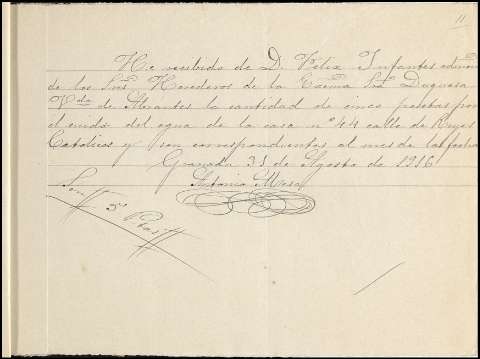 11
He recibido de D. Felix Infantes admon
de los Sres Herederos de la Excma Sra Duquesa
Vda de Abrantes la cantidad de cinco pesetas por
el cuido del agua de la casa nº 44 calle de Reyes
Católicos y son correspondientes al mes de la fecha
Granada 31 de Agosto de 1916
Antonio Mesa
Son # 5 Ptas #